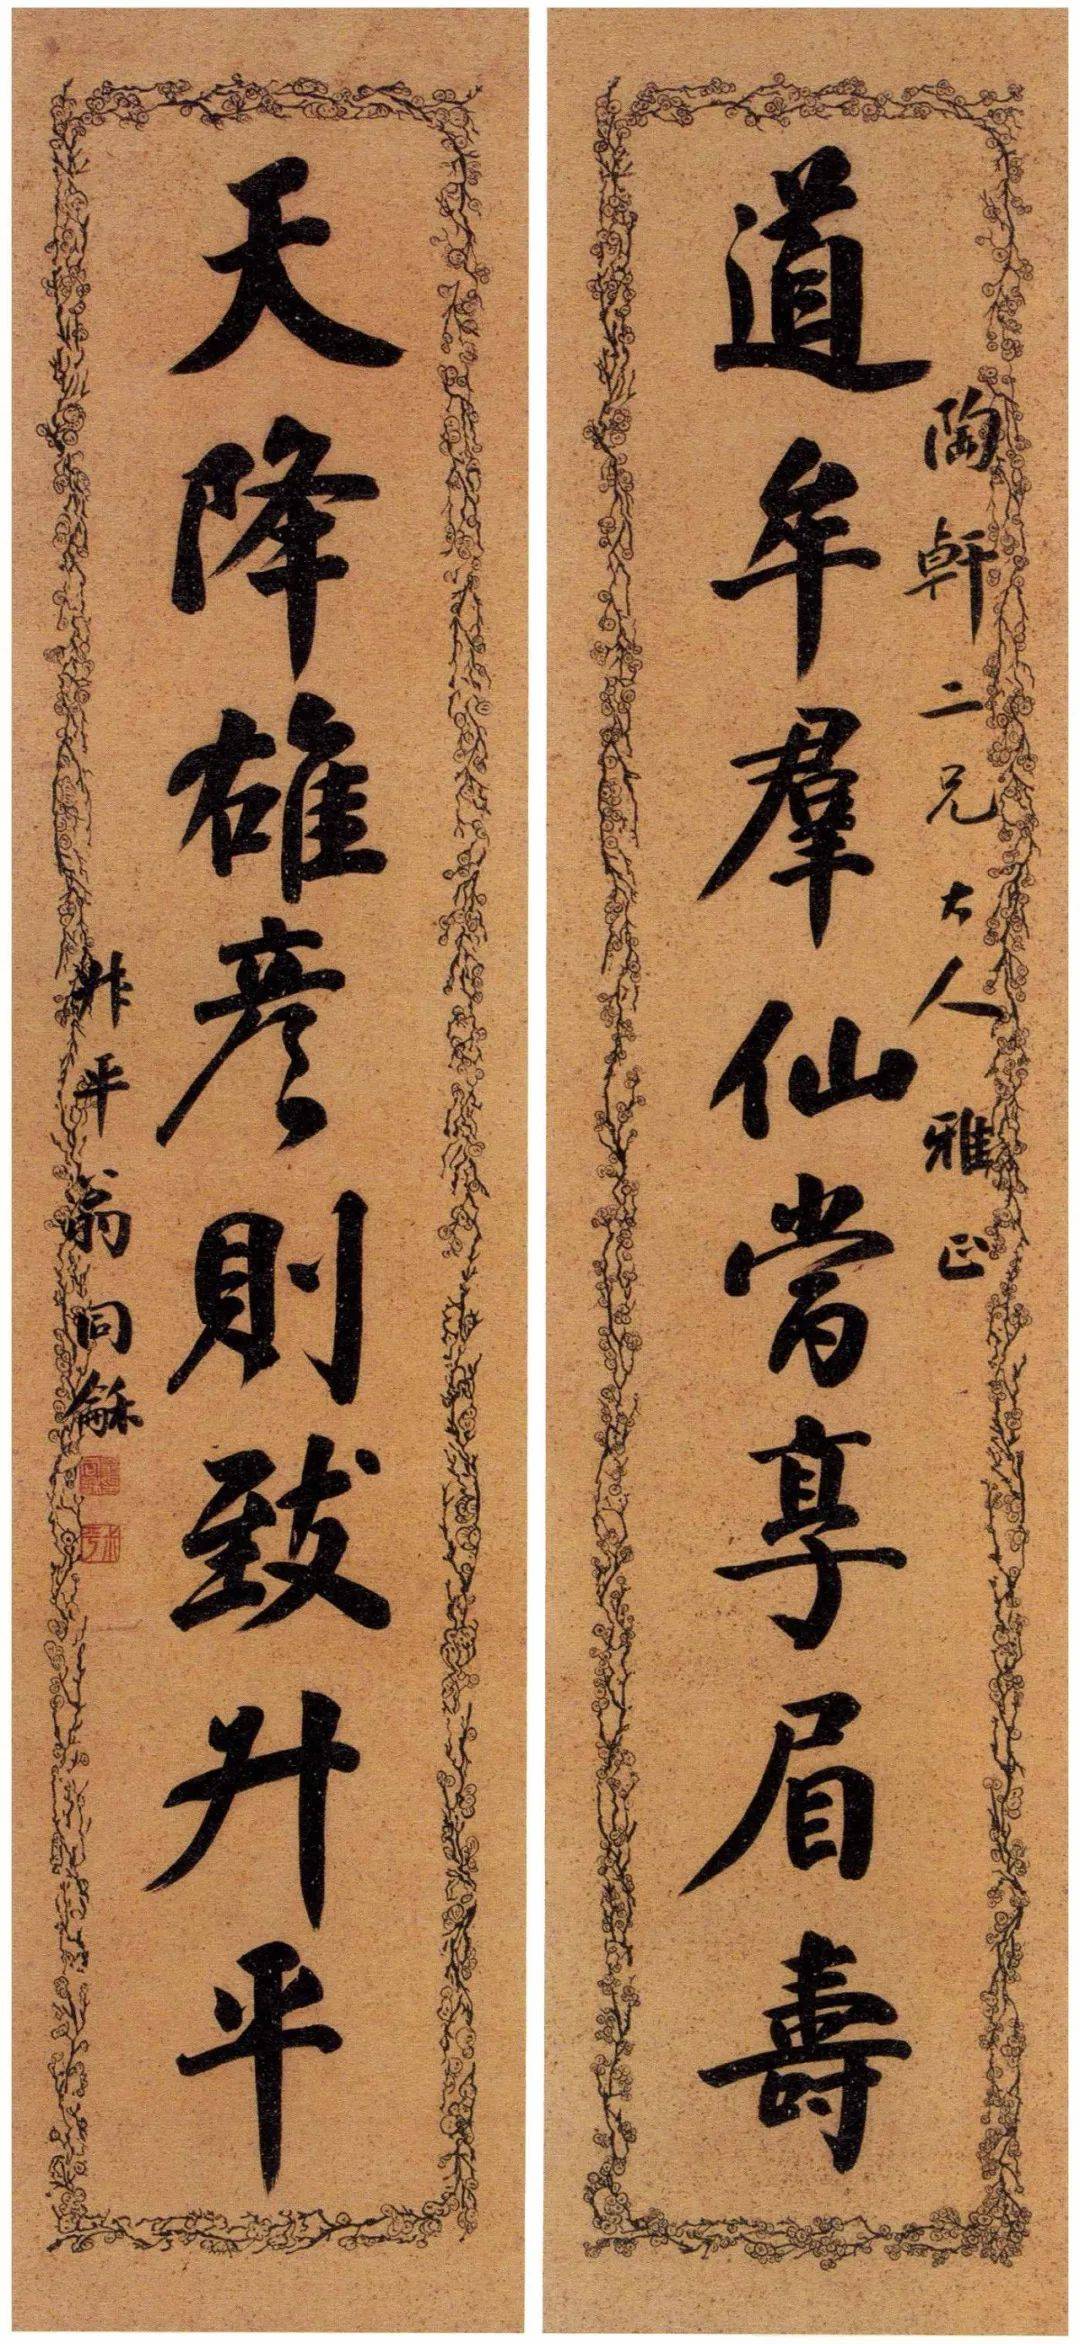 陶軒二兄大人雅正
道牟羣仙常享眉壽
天降雄彦則致升平
叔平翁同龢